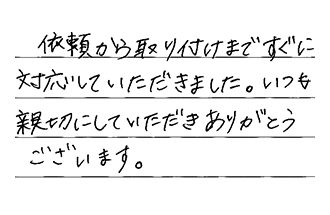 依頼から取り付けまですぐに
対応していただきました。いつも
親切にしていただきありがとう
ございます。